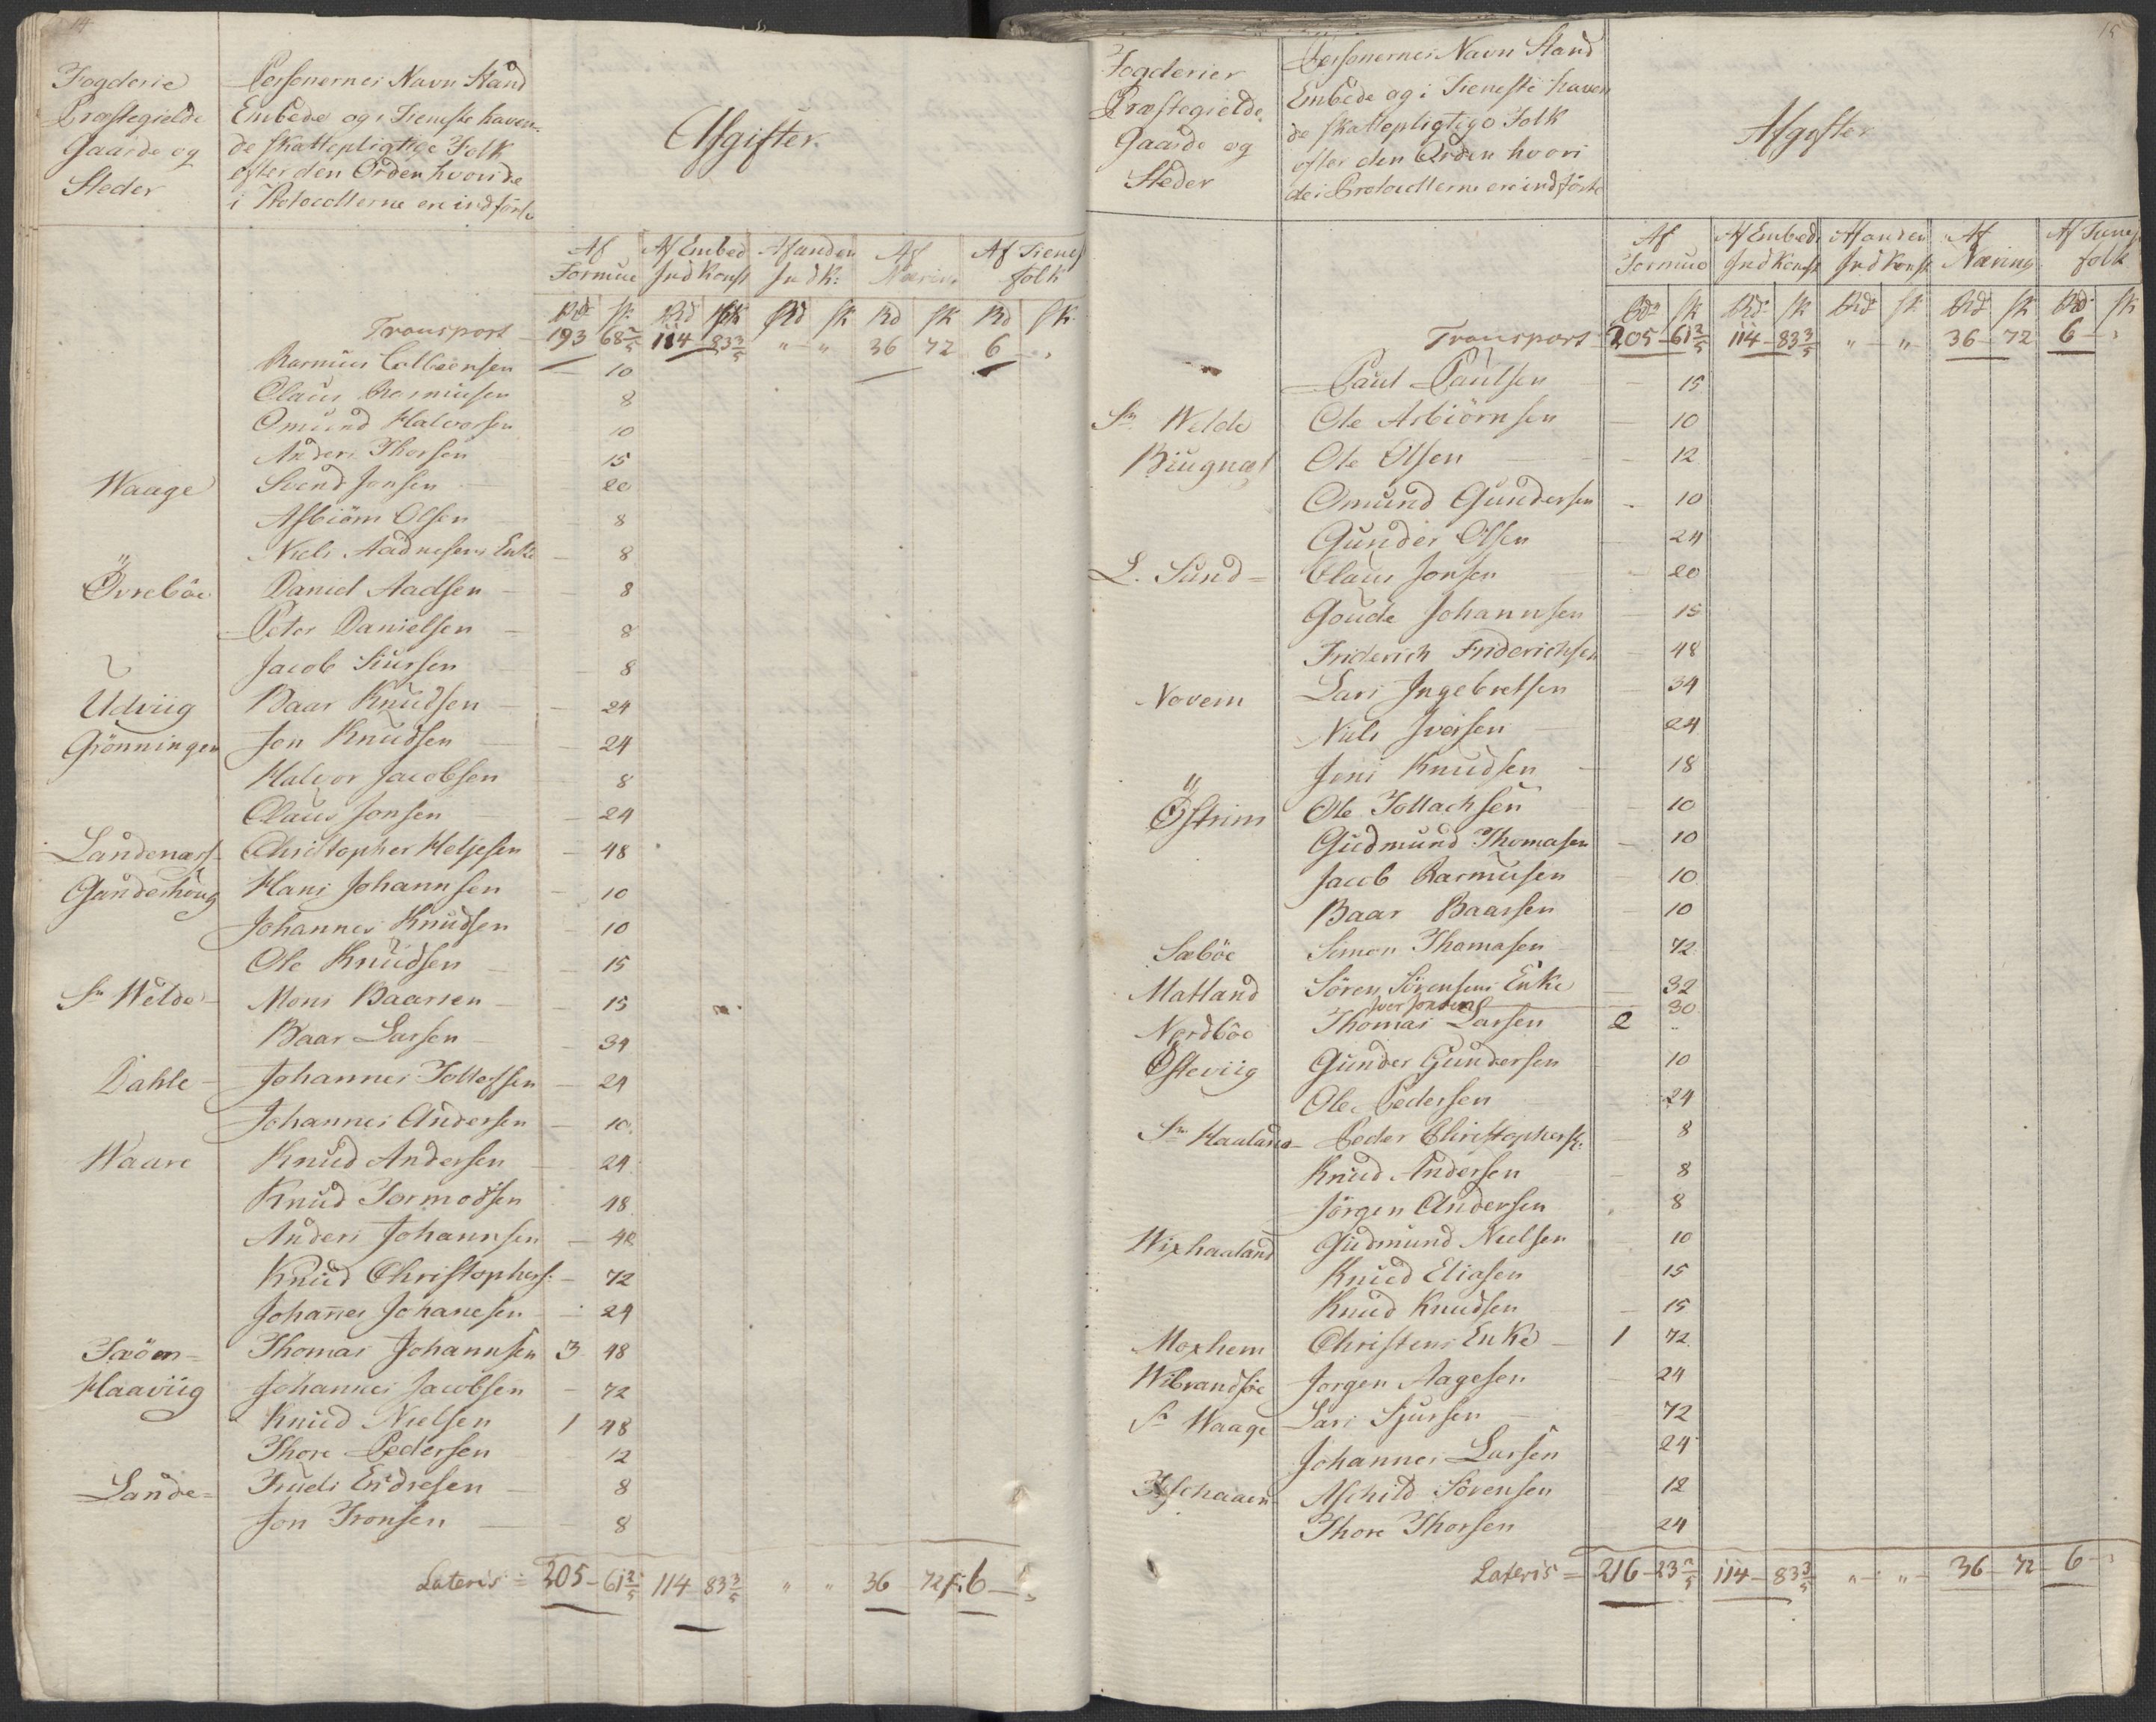 14
Fogderie
Præstegielde
Gaarde og
Steder
Personernes Navn Stand
Embede og i Tieneste haven-
de skattepligtige Folk
efter den Orden hvori de
i Protocollerne ere indførte
Afgifter.
Af Formue Af Embed Indkomst Af anden Indk: Af Næring Af Tienest folk
Rdr sk Rd sk Rd sk Rd sk Rd sk
Transport 193 68 2/5 114 83 3/5 " " 36 72 6 "
Rasmus Colbiensen 10
Claus Rasmusen 8
Omund Halvorsen 10
Anders Thorsen 15
Waage Svend Jonsen 20
Asbiörn Olsen 8
Niels Aadnesens Enke 8
Övreböe Daniel Aadsen 8
Peter Danielsen 8
Jacob Siursen 8
Udviig Baar Knudsen 24
Grönningen Jon Knudsen 24
Halvor Jacobsen 8
Claus Jonsen 24
Landenæs Christopher Heljesen 48
Gunderhoug Hans Johannsen 10
Johannes Knudsen 10
Ole Knudsen 15
Sr Welde Mons Baarsen 15
Baar Larsen 34
Dahle Johannes Tollefsen 24
Johannes Andersen 10
Waare Knud Andersen 24
Knud Tormodsen 48
Anders Johannsen 48
Knud Christophers: 72
Johannes Johanesen 24
Fæöen Thomas Johannsen 3 48
Haaviig Johannes Jacobsen 72
Knud Nielsen 1 48
Thore Pedersen 12
Lande Truels Endresen 8
Jon Tronsen 8
Lateris = 205 61 2/5 114 83 3/5 " " 36 72 6 "
15
Fogderier
Præstegielde
Gaarde og
Steder
Personernes Navn Stand
Embede og i Tieneste haven
de skattepligtige Folk
efter den Orden hvori
de i Protocollerne ere indførte
Afgifter
Af Formue Af Embeds Indkomst Af anden Indkomst Af Næring Af Tienest folk
Rdr sk Rdr sk Rdr sk Rdr sk Rdr sk
Transport 205 61 2/5 114 83 3/5 " " 36 72 6 "
Paul Paulsen 15
Sr Welde Ole Asbiörnsen 10
Biugnæs Ole Olsen 12
Omund Gundersen 10
Gunder Olsen 24
L. Sund = Claus Jonsen 20
Goude Johannsen 15
Friderich Friderichsen 48
Novem Lars Ingebretsen 34
Niels Iversen 24
Jens Knudsen 18
Östrim Ole Tollachsen 10
Gudmund Thomasen 10
Jacob Rasmusen 10
Baar Baarsen 10
Sæböe Simon Thomasen 72
Matland Sören Sörensens Enke 32
Iver Jonsen 30
Nordböe Thomas Larsen 2 "
Österviig Gunder Gundersen 10
Ole Pedersen 24
Sr Haaland Peder Christophers: 8
Knud Andersen 8
Jörgen Andersen 8
Wixhaaland Gudmund Nielsen 10
Knud Eliasen 15
Knud Knudsen 15
Moxhem Christens Enke 1 72
Wibrandsöe Jorgen Aagesen 24
Sr Waage Lars Sjursen 72
Johannes Larsen 24
Aschild Sörensen 12
Thore Thorsen 24
Lateris = 216 23 2/5 114 83 3/5 " " 36 72 6 "